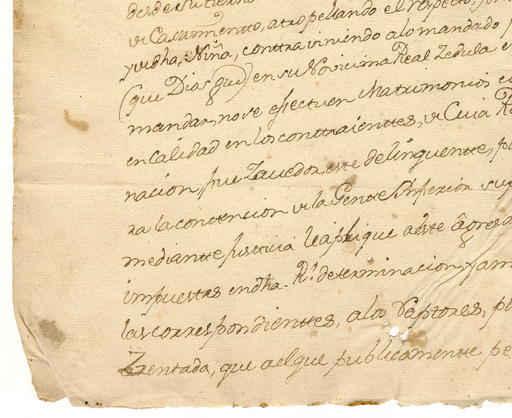 desde su tierno
de Casamientto, atropellando el respecto, 
y vidha. Niña, contraviniendo alo mandado p
(que Dios gue) en su Novissima Real Zedula e
mandar, no se efectuen Matrimonios
en Calidad en los contraienttes, de Cuia Re
nacion, fue Zauedor este delinquentte, p
ra la contencion de la Gentte Ynferior su
mediantte Justticia le aplique a este agresor
impuestas en dha. Rl. determinacion, y am
las correspondienttes, a los Raptores, p
Zentada, que a el que publicamentte pe